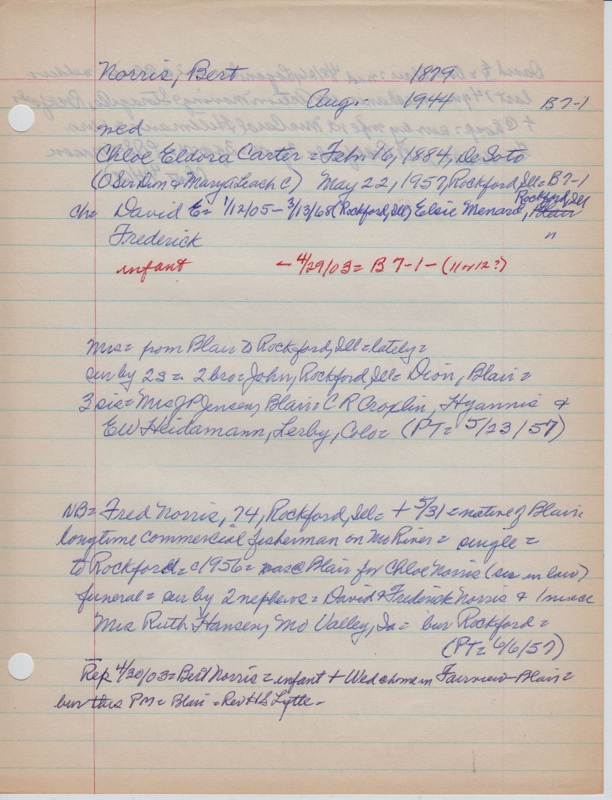 Norris, Bert 1879
Aug. - 1944 B7-1
med
Chloe Eldora Carter = Febr 16, 1884, De Soto
(O Ben Dim & Mary A Leach C) May 22, 1957, Rockford, Ill = B7-1
ch= David E = 1/12/05 - 3/13/68 (Rockford, Ill) Elsie Menard, Rockford, Ill
Frederick n
infant - 4/29/03 = B 7-1 - (11 or 12?)
Mrs = from Blair to Rockford, Ill = lately =
sur by 2s = 2 bro = John, Rockford, Ill = Dion, Blair =
3 sis = Mrs J P Jensen, Blair = C R Croplin, Hyannis &
E W Heidamann, Lerby, Colo = (PT = 5/23/57)
NB = Fred Norris, 74, Rockford, Ill = + 5/31 = native of Blair =
longtime commercial fisherman on Mo River = single =
to Rockford = c1956 = Blair for Chloe Norris (sis in law)
funeral = sur by 2 nephews = David & Frederick Norris & 1 niece
Mrs Ruth Hansen, Mo Valley, Ia = bur Rockford =
(PT = 6/6/57)
Rep 4/30/03 = Bert Norris = infant + Wed home in Fairview - Blair =
bur this PM = Blair = Rev H S Lytle -